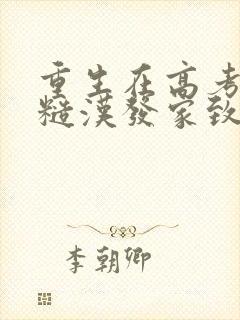 重生在高考
糙漢發家致
李朝卿